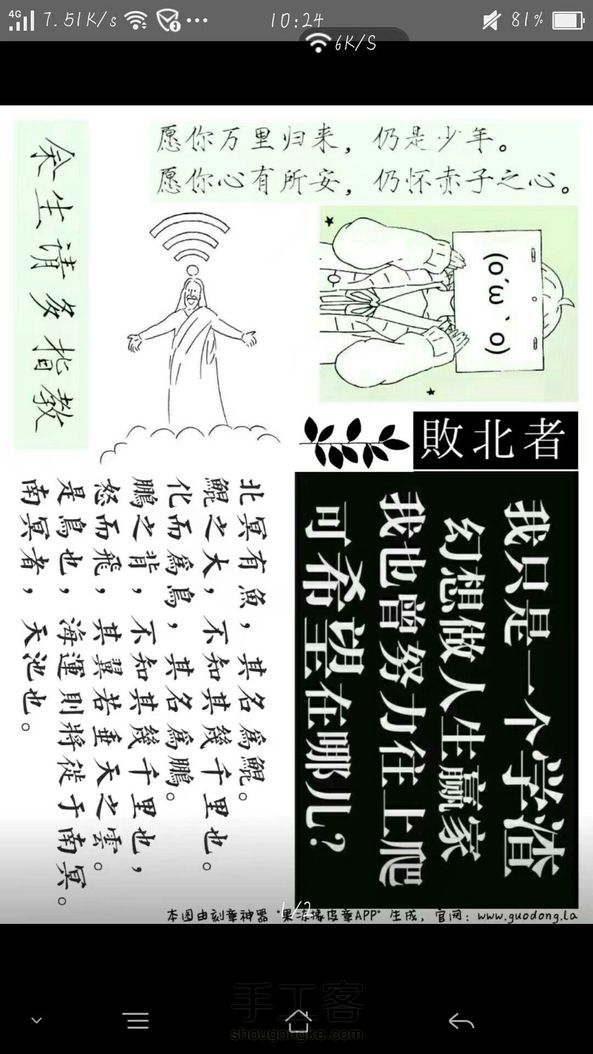 4G 7.51K/s 10:24 81%
6K/S
愿你万里归来，仍是少年。
愿你心有所安，仍怀赤子之心。
余生请多指教
(o´ω`o)
敗北者
我只是一个学渣
幻想做人生赢家
我也曾努力往上爬
可希望在哪儿？
北冥有魚，其名為鯤。
鯤之大，不知其幾千里也。
化而為鳥，其名為鵬。
鵬之背，不知其幾千里也，
怒而飛，其翼若垂天之雲。
是鳥也，海運則將徙于南冥。
南冥者，天池也。
1/2
本图由刻章神器 "果冻橡皮章APP" 生成，官网：www.guodong.la
手工客
shougongke.com